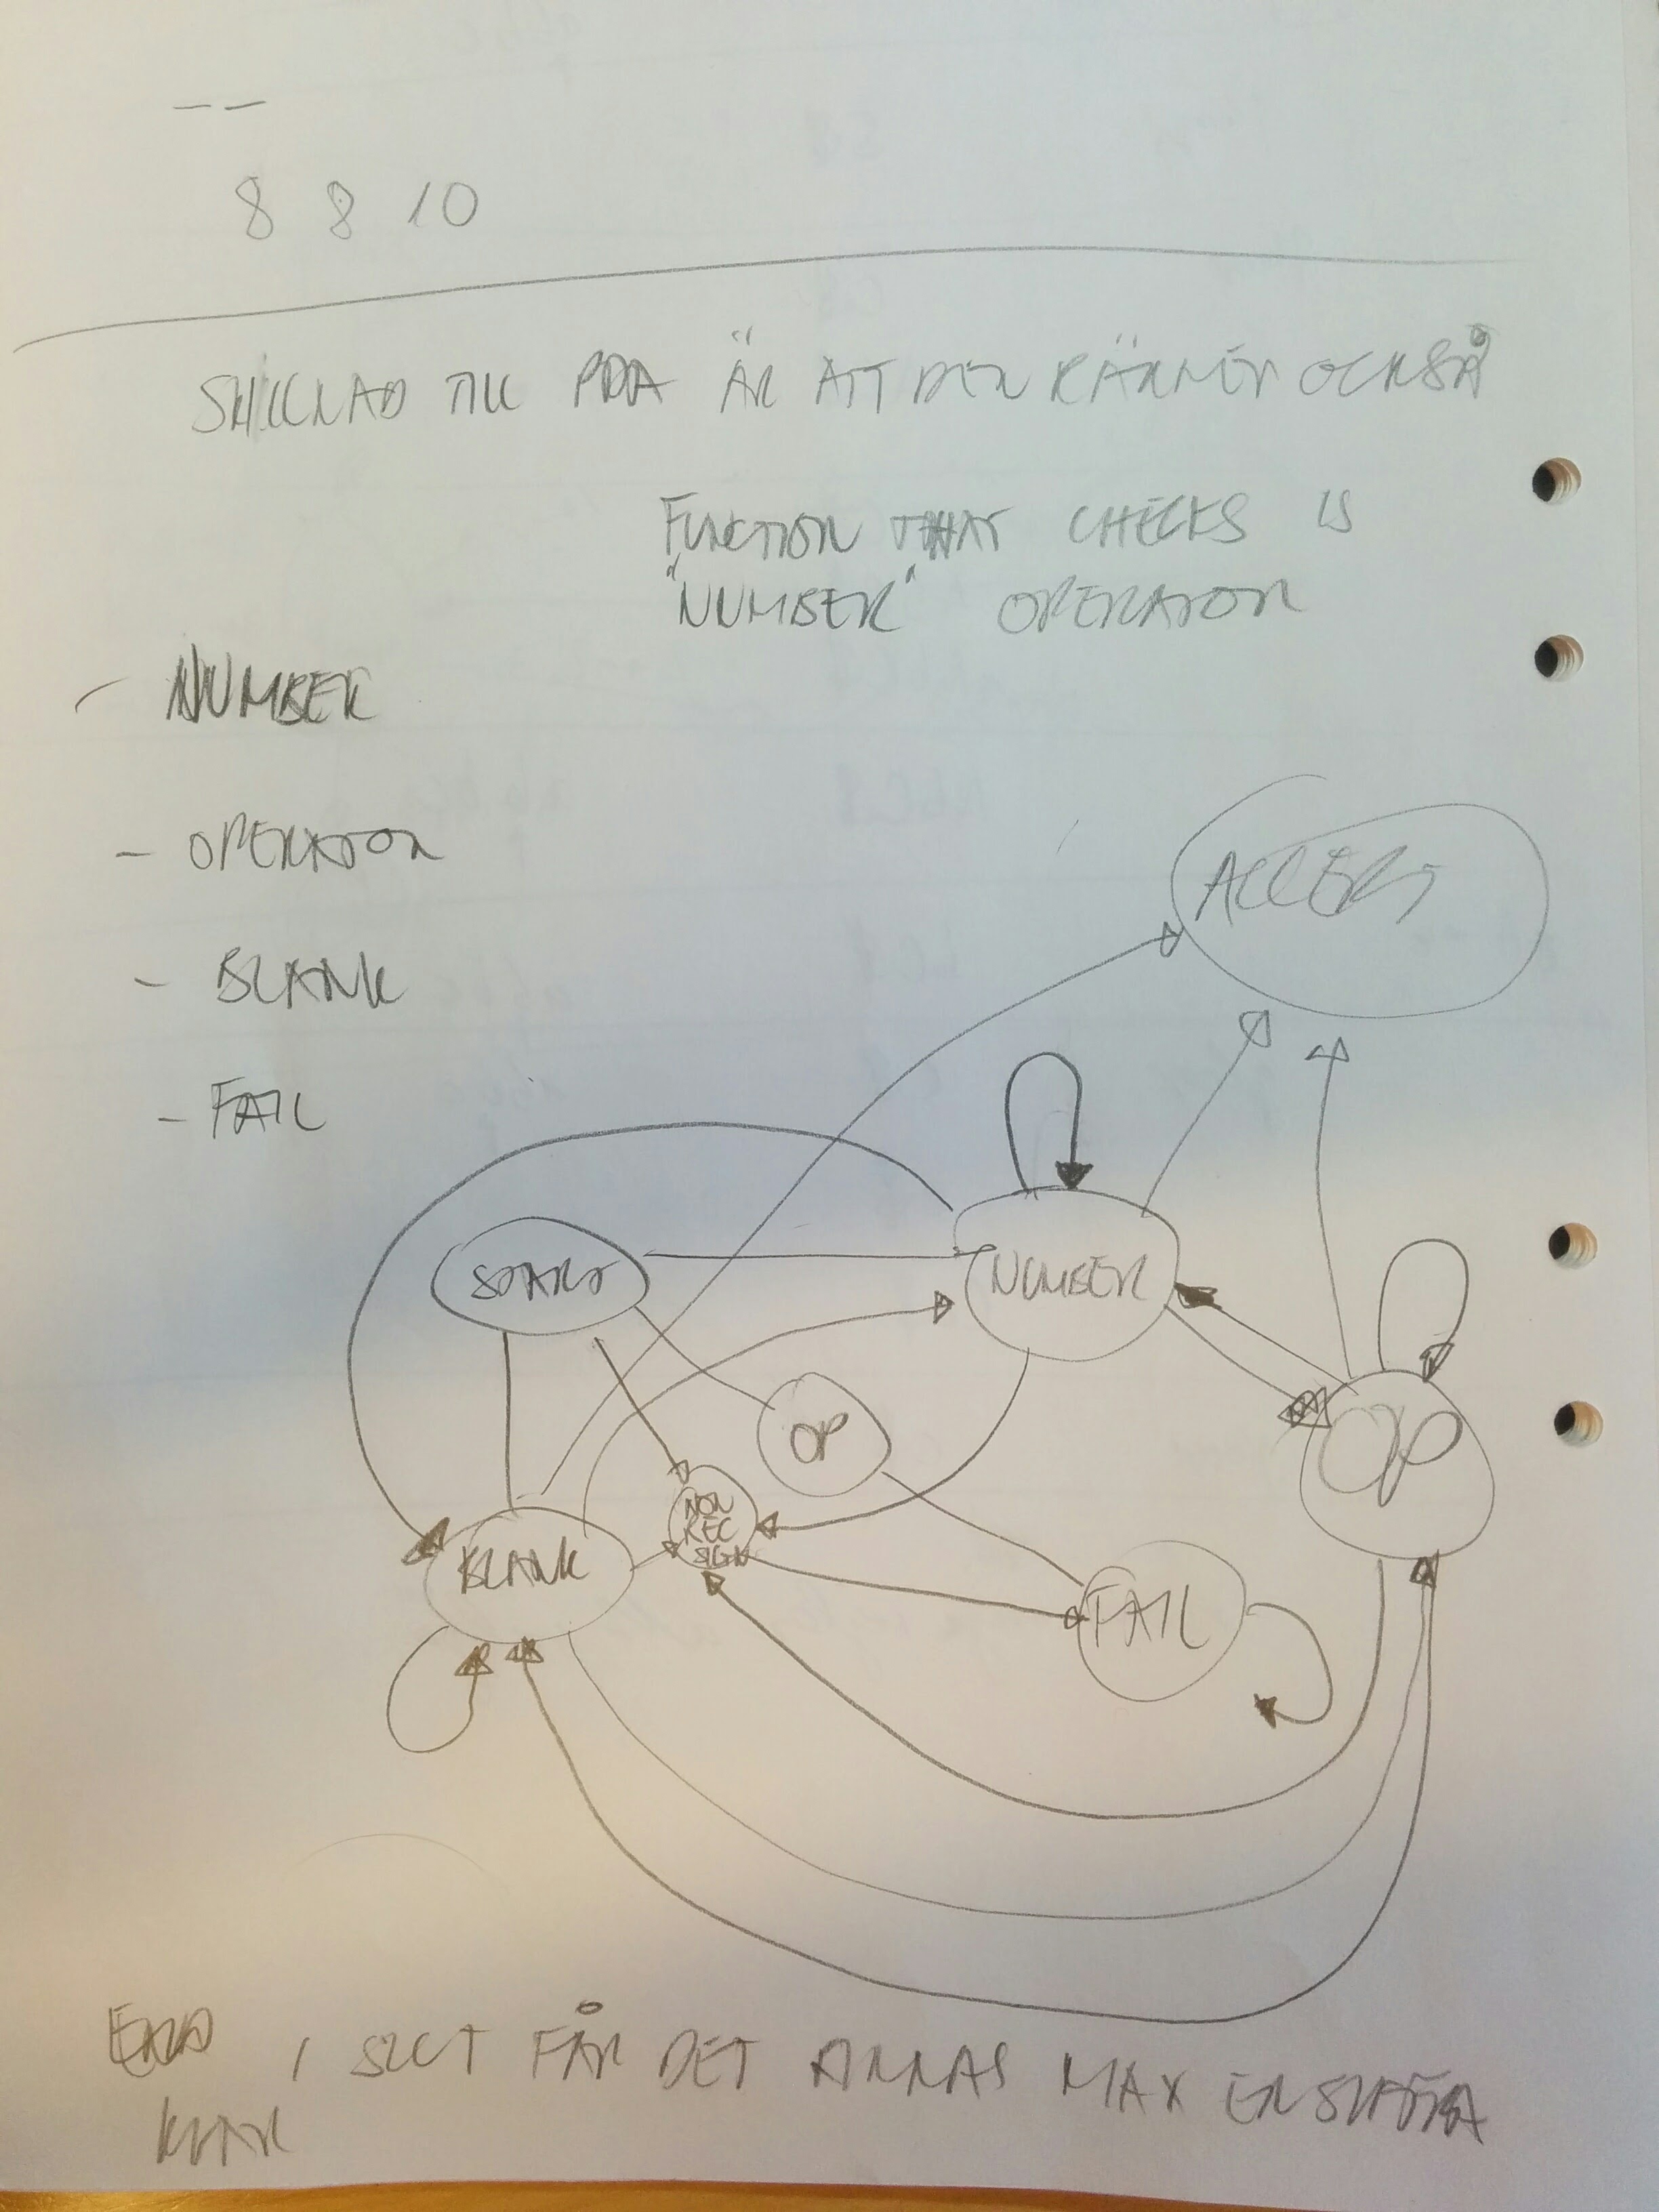 --
8 8 10
SKILLNAD TILL PDA ÄR ATT DEN RÄKNER OCKSÅ
FUNCTION THAT CHECKS IS
"NUMBER" OPERATOR
- NUMBER
- OPERATOR
- BLANK
- FAIL
ACCEPT
START
NUMBER
OP
OP
NON
REC
SIGN
BLANK
FAIL
END I SLUT FÅR DET FINNAS MAX EN
KVAR